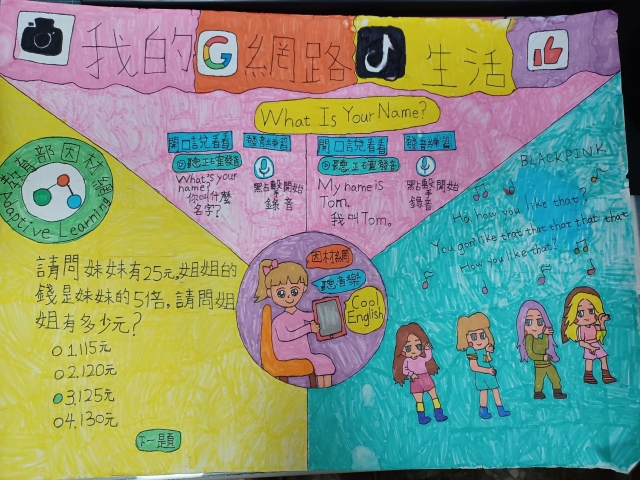 我的網路生活
What Is Your Name?
開口說看看
發音練習
聽正確發音
What's your
name?
你叫什麼
名字?
點擊開始
錄音
開口說看看
發音練習
聽正確發音
My name is
Tom.
我叫Tom。
點擊開始
錄音
教育部因材網
Adaptive Learning
請問妹妹有25元,姐姐的
錢是妹妹的5倍,請問姐
姐有多少元?
1.115元
2.120元
3.125元
4.130元
下一題
因材網
聽音樂
Cool
English
BLACKPINK
Ha, how you like that?
You gon' like that that that that that
How you like that?